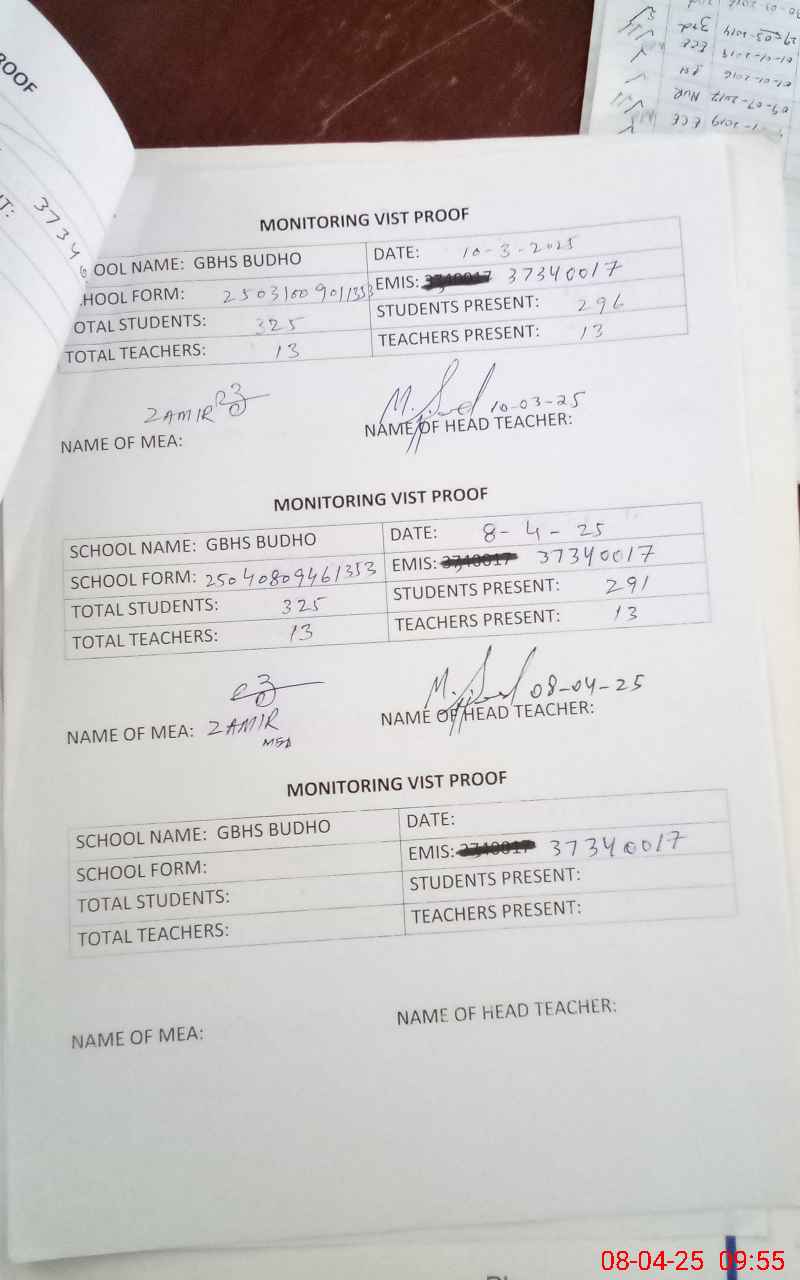 ROOF
T: 3734
MONITORING VIST PROOF
OOL NAME: GBHS BUDHO DATE: 10-3-2025
HOOL FORM: 25031009011353 EMIS: 37340017
OTAL STUDENTS: 325 STUDENTS PRESENT: 296
TOTAL TEACHERS: 13 TEACHERS PRESENT: 13
ZAMIR 10-03-25
NAME OF MEA: NAME OF HEAD TEACHER:
MONITORING VIST PROOF
SCHOOL NAME: GBHS BUDHO DATE: 8-4-25
SCHOOL FORM: 25040809461353 EMIS: 37340017
TOTAL STUDENTS: 325 STUDENTS PRESENT: 291
TOTAL TEACHERS: 13 TEACHERS PRESENT: 13
08-04-25
NAME OF MEA: ZAMIR NAME OF HEAD TEACHER:
MEA
MONITORING VIST PROOF
SCHOOL NAME: GBHS BUDHO DATE:
SCHOOL FORM: EMIS: 37340017
TOTAL STUDENTS: STUDENTS PRESENT:
TOTAL TEACHERS: TEACHERS PRESENT:
NAME OF MEA: NAME OF HEAD TEACHER:
08-04-25 09:55